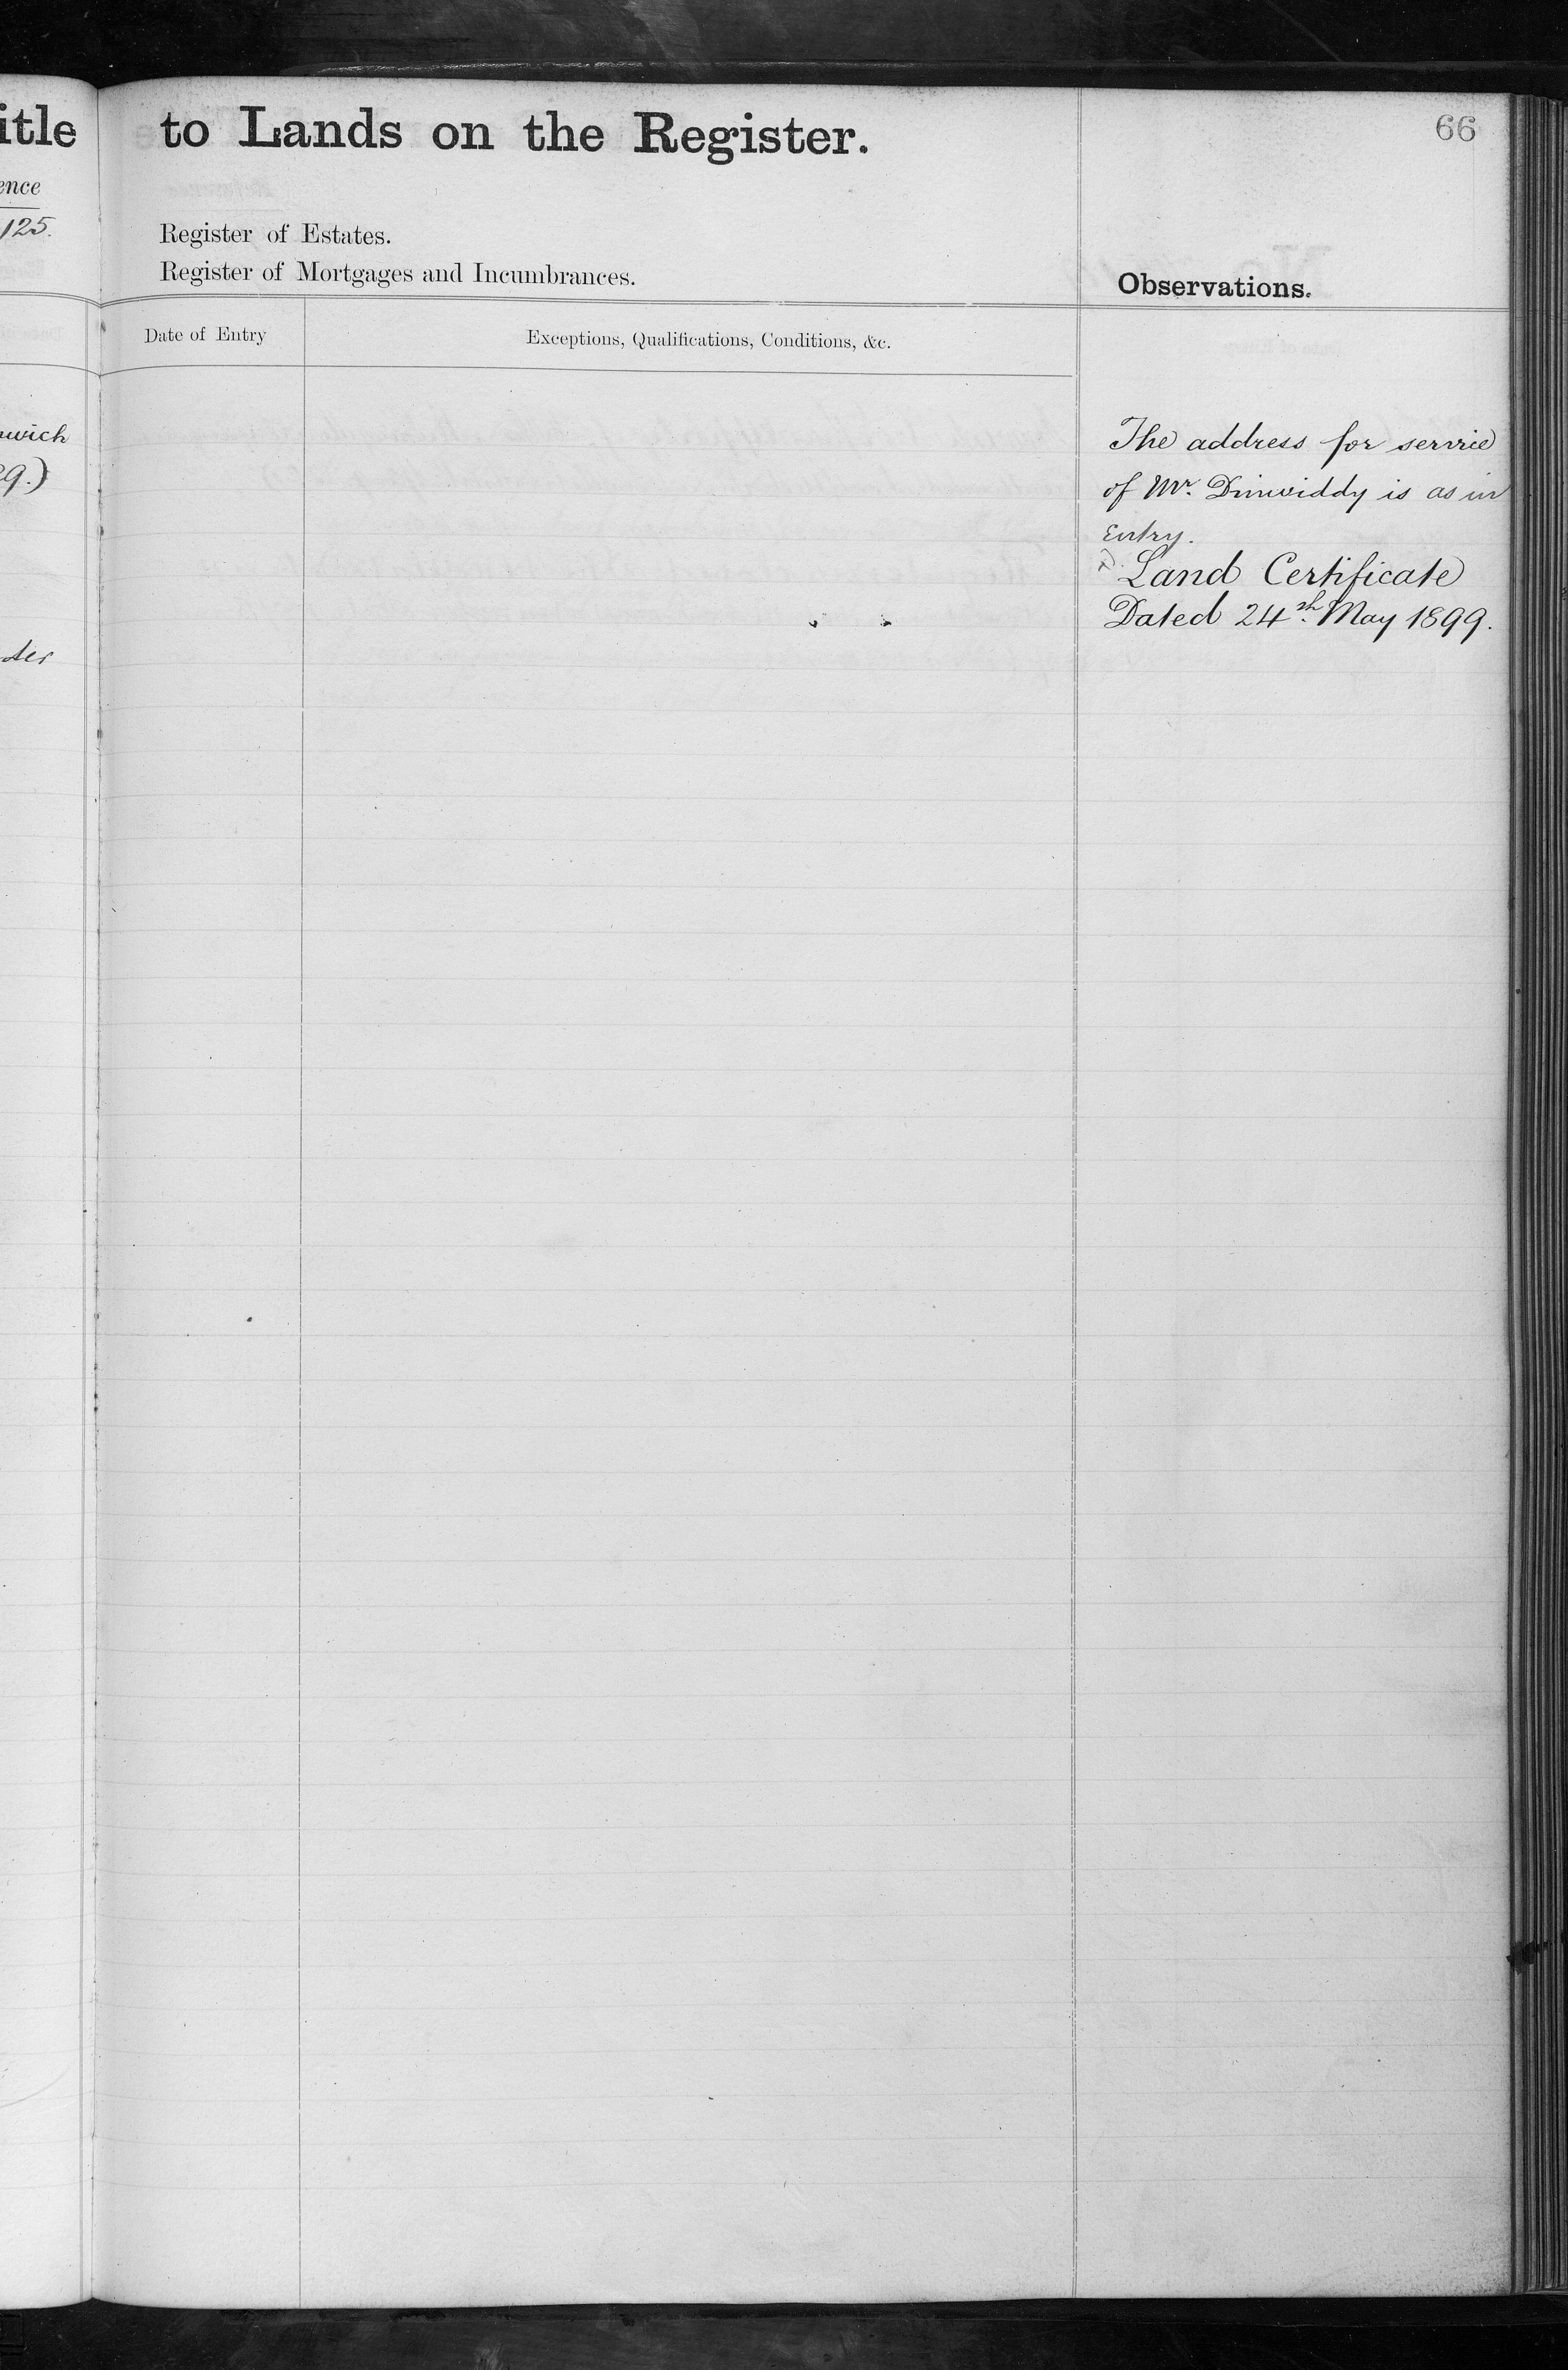 itle
ence
125.
wich
29.)
to Lands on the Register.
66
Register of Estates.
Register of Mortgages and Incumbrances.
Observations.
Date of Entry
Exceptions, Qualifications, Conditions, &c.
The address for service
of Mr. Dinwiddy is as in
Entry.
Land Certificate
Dated 24th May 1899.